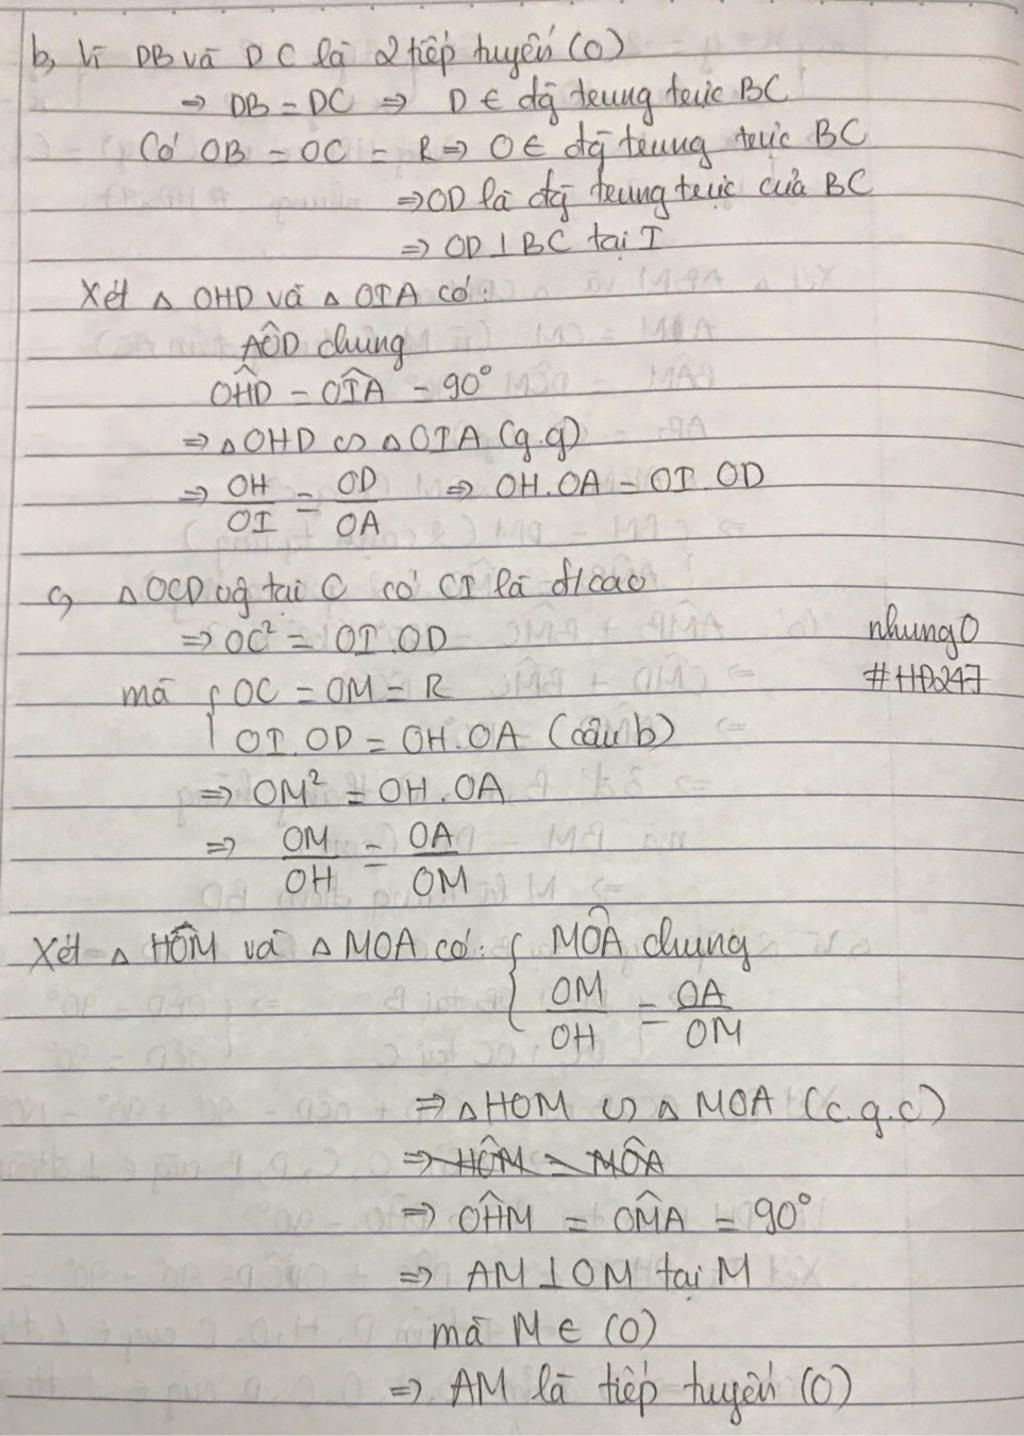 b, Vì DB và DC là 2 tiếp tuyến (O)
⇒ DB = DC ⇒ D ∈ đg̃ trung trực BC
Có OB = OC = R ⇒ O ∈ đg̃ trung trực BC
⇒ OD là đg̃ trung trực của BC
⇒ OD ⊥ BC tại I
Xét △ OHD và △ OIA có:
AÔD chung
OĤD = OÎA = 90°
⇒ △OHD ∽ △OIA (g.g)
⇒ OH/OI = OD/OA ⇒ OH.OA = OI.OD
c, △OCD vg̃ tại C có CI là đ/cao
⇒ OC² = OI.OD
nhungO
#HĐ247
mà { OC = OM = R
OI.OD = OH.OA (câu b)
⇒ OM² = OH.OA
⇒ OM/OH = OA/OM
Xét △ HOM và △ MOA có: { MÔA chung
OM/OH = OA/OM
⇒ △HOM ∽ △ MOA (c.g.c)
⇒ HÔM = MÔA
⇒ OĤM = OM̂A = 90°
⇒ AM ⊥ OM tại M
mà M ∈ (O)
⇒ AM là tiếp tuyến (O)